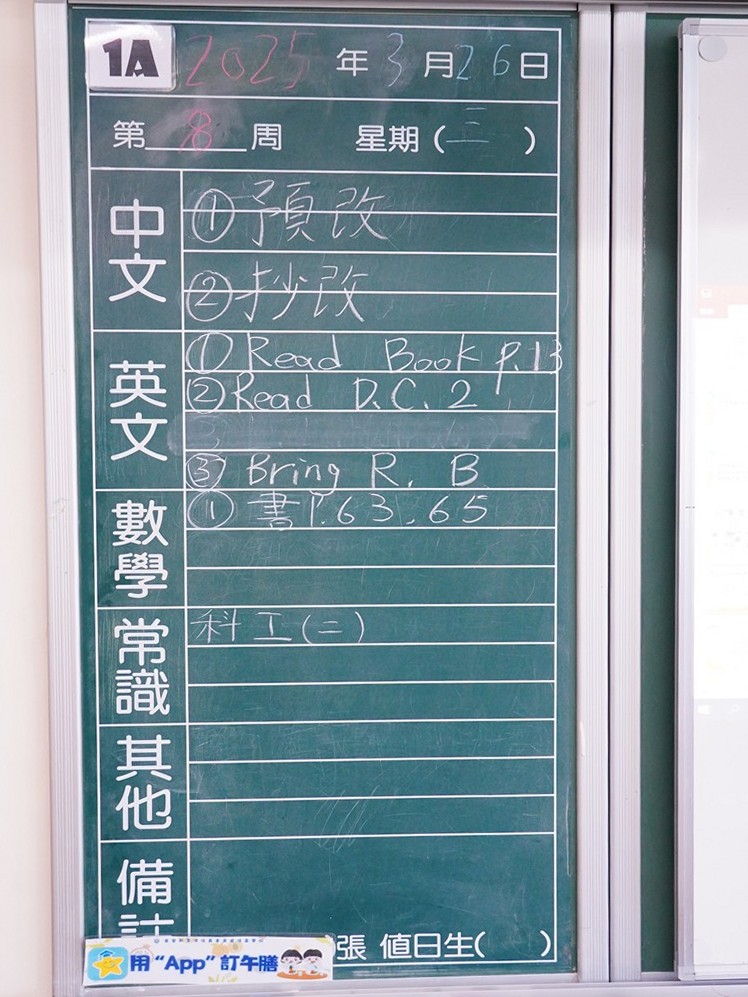 1A 2025年3月26日
第8周 星期(三)
中文
①預改
②抄改
英文
①Read Book p.13
②Read D.C. 2
③Bring R. B
數學
①書P.63.65
常識
科工(二)
其他
備註
張 值日生( )
用“App”訂午膳